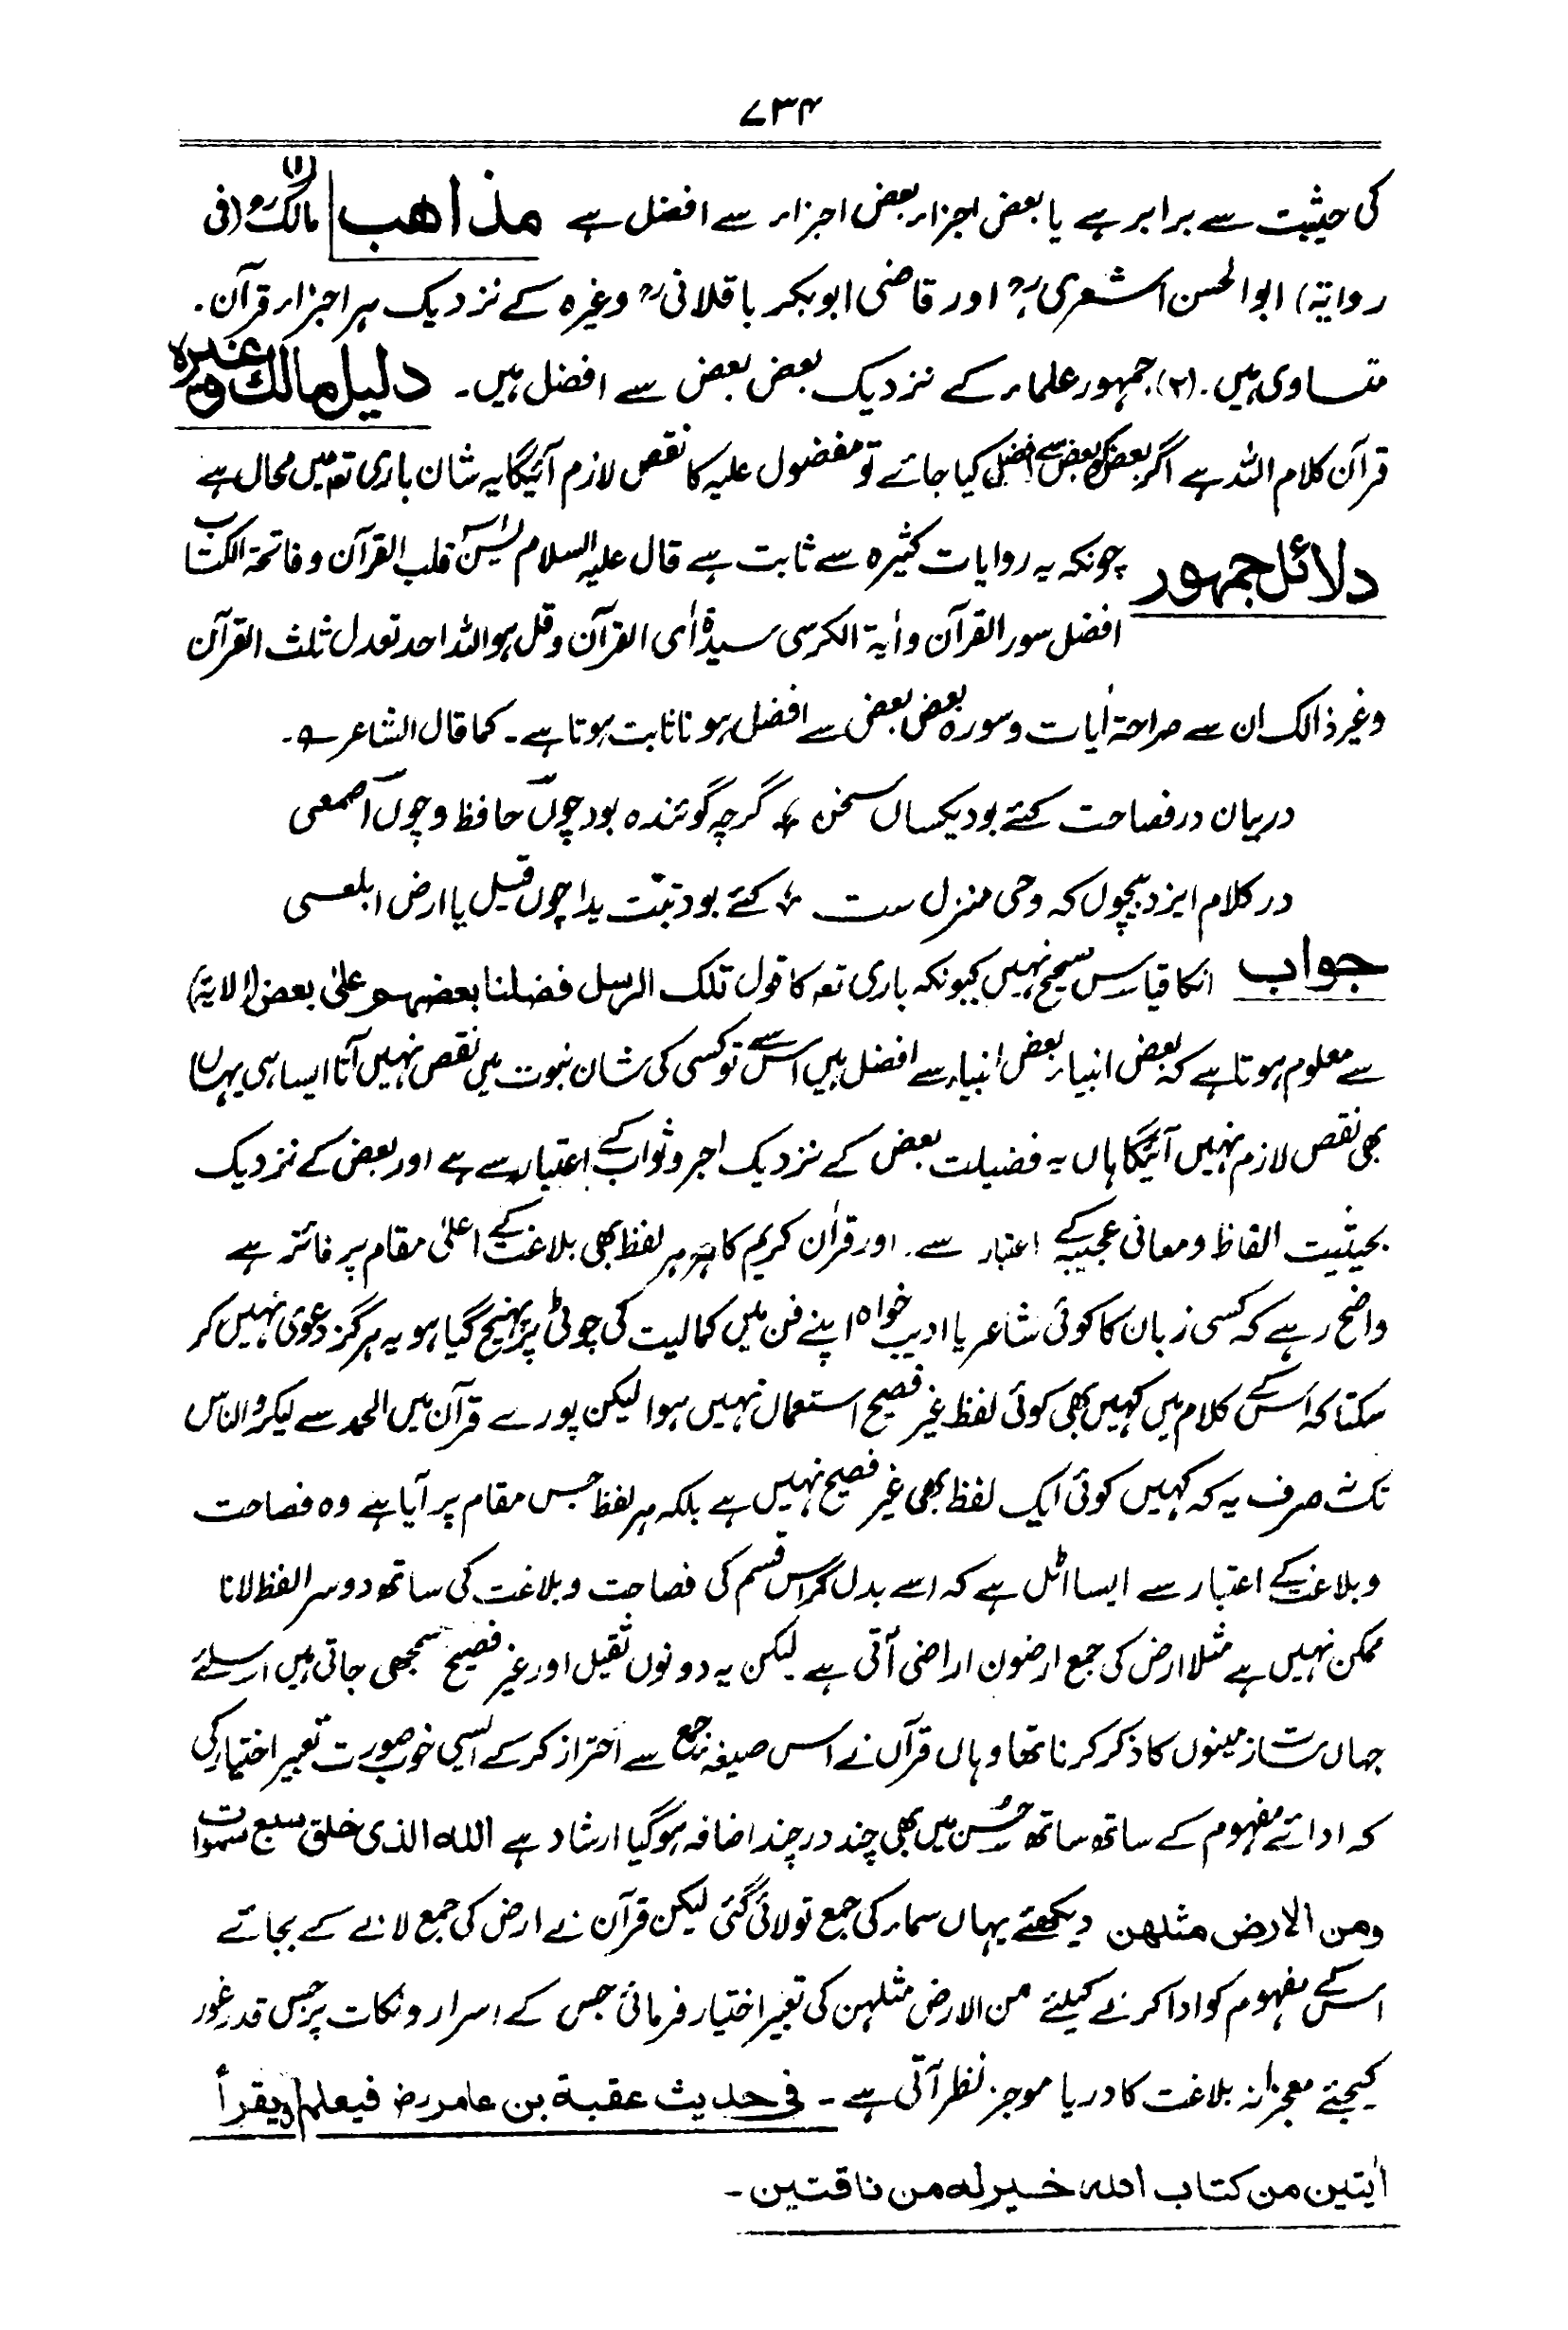 ۷۳۴
کی حیثیت سے برابر ہے یا بعض اجزاء بعض اجزاء سے افضل ہے مذاھب (۱) مالکؒ (فی
روایۃ) ابوالحسن اشعریؒ اور قاضی ابوبکر باقلانیؒ وغیرہ کے نزدیک ہر اجزاء قرآن۔
متساوی ہیں۔ (۲) جمہور علماء کے نزدیک بعض بعض سے افضل ہیں۔ دلیل مالک وغیرہ
قرآن کلام اللہ ہے اگر بعض کو بعض سے افضل کیا جائے تو مفضول علیہ کا نقص لازم آئیگا یہ شان باری تعہ میں محال ہے
دلائل جمہور چونکہ یہ روایات کثیرہ سے ثابت ہے قال علیہ السلام یٰسٓ قلب القرآن و فاتحۃ الکتاب
افضل سور القرآن و اٰیۃ الکرسی سیدۃ اٰی القرآن و قل ہو اللہ احد تعدل ثلث القرآن
وغیر ذالک ان سے صراحۃ اٰیات و سورہ بعض بعض سے افضل ہونا ثابت ہوتا ہے۔ کما قال الشاعر ؎۔
در بیان در فصاحت کئے بود یکساں سخن ٭ گرچہ گوئندہ بود چوں حافظ و چوں اصمعی
در کلام ایزد بیچوں کہ وحی منزل ست ٭ کئے بود تبّت یدا چوں قیل یا ارض ابلعی
جواب انکا قیاس صحیح نہیں کیونکہ باری تعہ کا قول تلک الرسل فضلنا بعضہم علیٰ بعض (الایۃ)
سے معلوم ہوتا ہے کہ بعض انبیاء بعض انبیاء سے افضل ہیں اس سے تو کسی کی شان نبوت میں نقص نہیں آتا ایسا ہی یہاں
بھی نقص لازم نہیں آئیگا ہاں یہ فضیلت بعض کے نزدیک اجر و ثواب کے اعتبار سے ہے اور بعض کے نزدیک
بحیثیت الفاظ و معانی عجیبہ کے اعتبار سے۔ اور قراٰن کریم کا ہر ہر لفظ بھی بلاغت کے اعلیٰ مقام پر فائز ہے
واضح رہے کہ کسی زبان کا کوئی شاعر یا ادیب خواہ اپنے فن میں کمالیت کی چوٹی پر پہنچ گیا ہو یہ ہرگز دعویٰ نہیں کر
سکتا کہ اس کے کلام میں کہیں بھی کوئی لفظ غیر فصیح استعمال نہیں ہوا لیکن پورے قرآن میں الحمد سے لیکر والناس
تک نہ صرف یہ کہ کہیں کوئی ایک لفظ بھی غیر فصیح نہیں ہے بلکہ ہر لفظ جس مقام پر آیا ہے وہ فصاحت
و بلاغت کے اعتبار سے ایسا اٹل ہے کہ اسے بدل کر اس قسم کی فصاحت و بلاغت کی ساتھ دوسرا لفظ لانا
ممکن نہیں ہے مثلا ارض کی جمع ارضون اراضی آتی ہے لیکن یہ دونوں ثقیل اور غیر فصیح سمجھی جاتی ہیں اسلئے
جہاں سات زمینوں کا ذکر کرنا تھا وہاں قرآن نے اس صیغہ جمع سے احتراز کرکے ایسی خوبصورت تعبیر اختیار کی
کہ ادائے مفہوم کے ساتھ ساتھ حُسن میں بھی چند در چند اضافہ ہوگیا ارشاد ہے اللہ الذی خلق سبع سمٰوات
ومن الارض مثلھن دیکھئے یہاں سماء کی جمع تو لائی گئی لیکن قرآن نے ارض کی جمع لانے کے بجائے
اس کے مفہوم کو ادا کرنے کیلئے من الارض مثلہن کی تعبیر اختیار فرمائی جس کے اسرار و نکات پر جس قدر غور
کیجئے معجزانہ بلاغت کا دریا موجزن نظر آتی ہے۔ فی حدیث عقبۃ بن عامر رض فیعلم او یقرأ
اٰیتین من کتاب اللہ خیر لہ من ناقتین۔